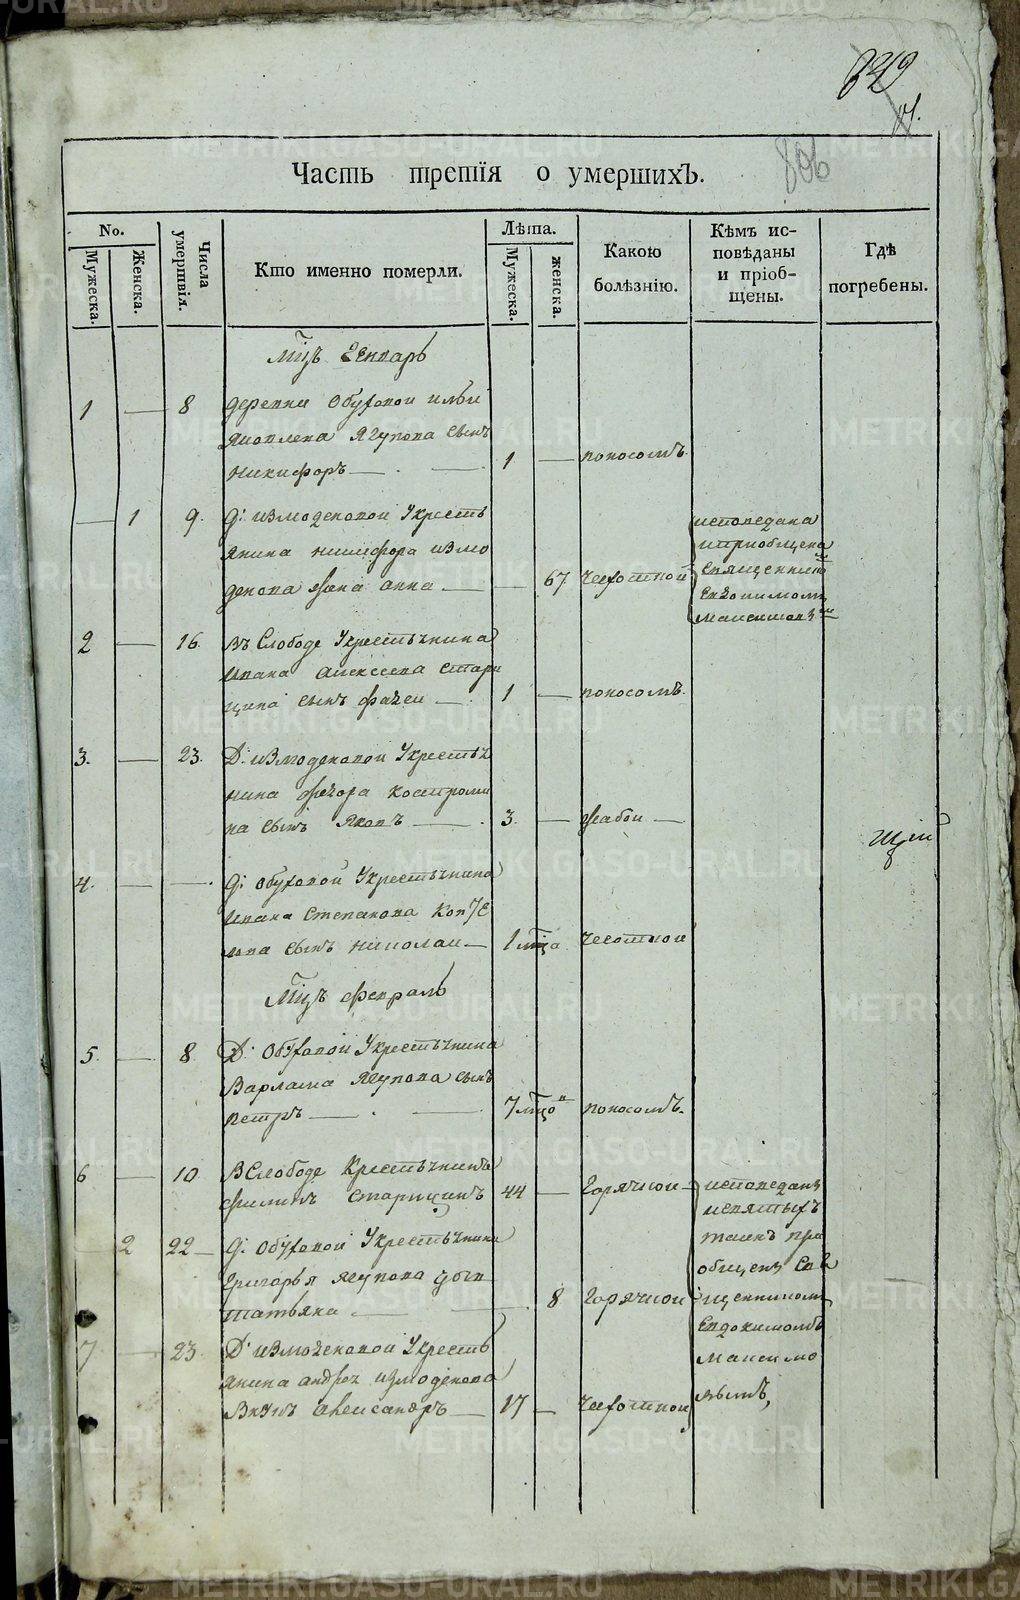 METRIKI.GASO-URAL.RU
806
Часть третія о умершихЪ.
No.
Мужеска.
Женска.
Числа умертвія.
Кто именно померли.
Лѣта.
Мужеска.
женска.
Какою болѣзнію.
Кѣмъ исповѣданы и пріобщены.
Гдѣ погребены.
Мцъ Генварь
1 — 8 деревни Обуховой
Ягупова сынъ
Никифоръ — 1 — поносомъ
— 1 9. Д: Измоденовой Укресть
янина Никифора Измо
денова жена Анна — — 67 чехотной
исповедана
иприобщена
Священником
Евдокимомъ
Максимовым
2 — 16. Въ Слободе Укрестьянина
Ивана Алексеева Стари
цина сынъ Фадеи — 1 — поносомъ.
3. — 23. Д: Измоденовой Укрестья
нина Федора Костроми
на сынъ Яковъ — 3. — жабои —
4. — — Д: Обуховой Укрестьянина
Ивана Степанова
сынъ Николаи — 1 мца чесотнои
Мцъ Февраль
5. — 8 Д: Обуховой Укрестьянина
Варлама Ягупова сынъ
Петръ — 7 мцов поносомъ.
6 — 10. ВСлободе Крестьянинъ
Филипъ Старицинъ 44 — Горячкои
исповеданъ
исвятыхъ
таинъ при
общенъ Свя
щенникомъ
Евдокимомъ
Максимо
вымъ,
2 22 — Д: Обуховой Укрестьянина
Григорья Ягупова дочь
Татьяна — 8 Горячкои
7 — 23. Д: Измоденовой Укресть
янина Андрея Измоденова
Внукъ Александръ — 17 — Чехотнои